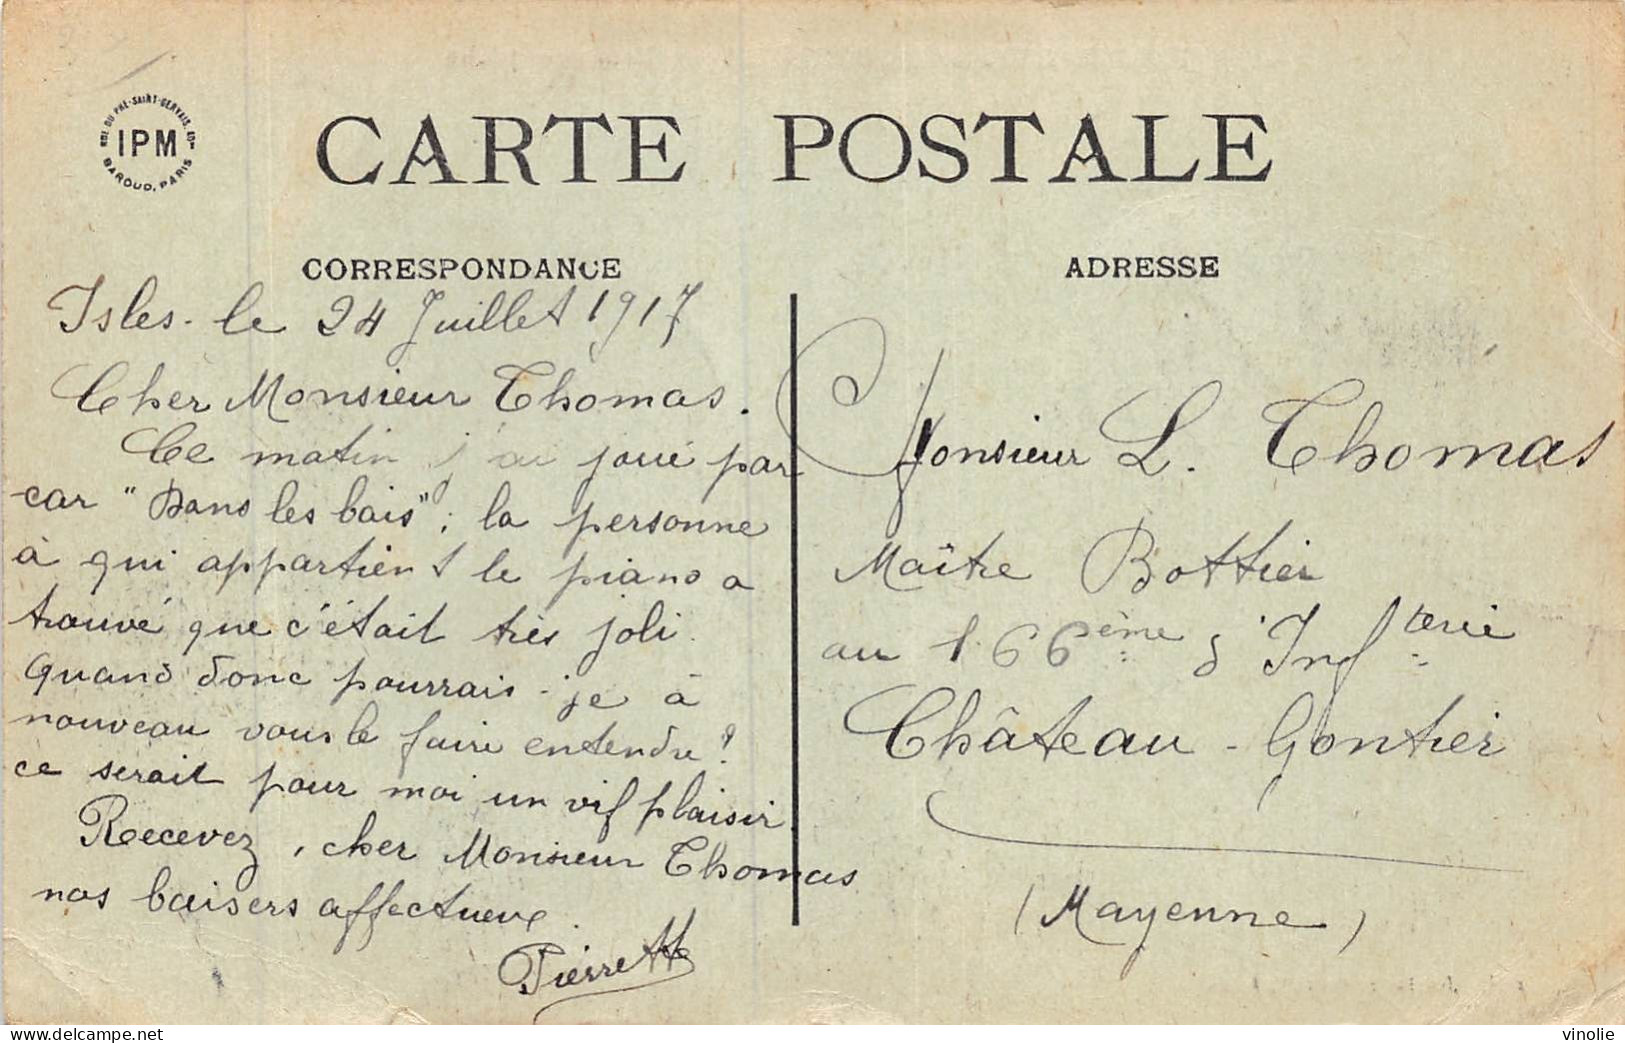 RUE DU PRÉ-SAINT-GERVAIS, ED.
IPM
BAROUD, PARIS
CARTE POSTALE
CORRESPONDANCE
Isles - le 24 Juillet 1917
Cher Monsieur Thomas.
Ce matin j'ai joué par
cœur "Dans les bois"; la personne
à qui appartient le piano a
trouvé que c'était très joli.
Quand donc pourrais-je à
nouveau vous le faire entendre?
ce serait pour moi un vif plaisir
Recevez, cher Monsieur Thomas
nos baisers affectueux.
Pierrette
ADRESSE
Monsieur L. Thomas
Maître Bottier
au 166ème d'Inf terie
Château-Gontier
(Mayenne)
vinolie